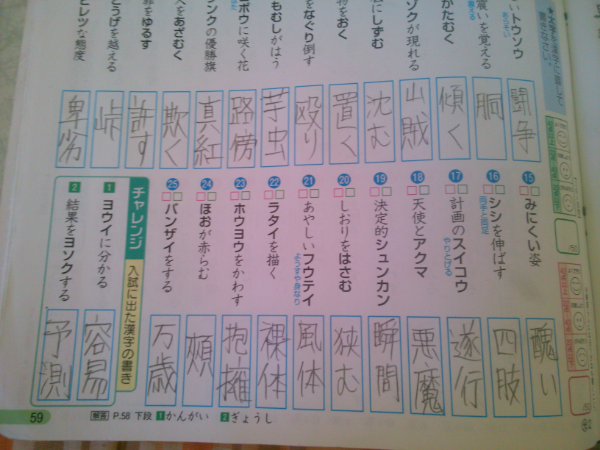 いトウソウ
闘争
震いを覚える
胴
かたむく
傾く
ゾクが現れる
山賊
にしずむ
沈む
をおく
置く
をなぐり倒す
殴り
もむしがはう
芋虫
ボウに咲く花
路傍
ンクの優勝旗
真紅
をあざむく
欺く
ゆるす
許す
とうげを越える
峠
ヒレツな態度
卑劣
⑮ みにくい姿
醜い
⑯ シシを伸ばす
両手と両足
四肢
⑰ 計画のスイコウ
やりとげる
遂行
⑱ 天使とアクマ
悪魔
⑲ 決定的シュンカン
瞬間
⑳ しおりをはさむ
狭む
㉑ あやしいフウテイ
ようすや身なり
風体
㉒ ラタイを描く
裸体
㉓ ホウヨウをかわす
抱擁
㉔ ほおが赤らむ
頬
㉕ バンザイをする
万歳
チャレンジ 入試に出た漢字の書き
1 ヨウイに分かる
容易
2 結果をヨソクする
予測
59 解答 P.58 下段 1かんがい 2ぎょうし